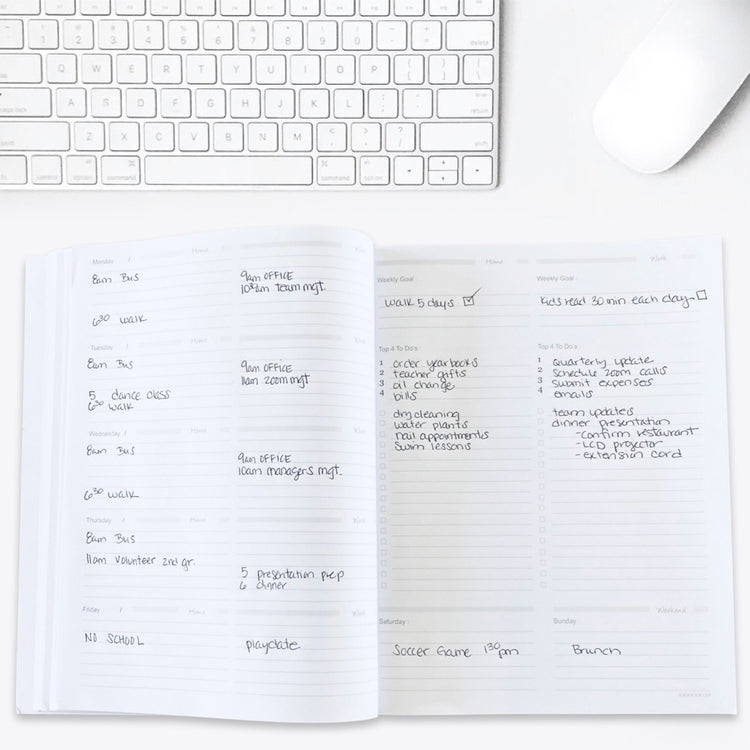 1 2 3 4 5 6 7 8 9 0 - + delete
Q W E R T Y U I O P { [ } ] | \
A S D F G H J K L : ; " ' return
Z X C V B N M < , > . ? / shift
control option command command option
Monday / Home
8am Bus
9am OFFICE
10:30am team mgt.
6:30 walk
Tuesday /
8am Bus
9am OFFICE
11am zoom mgt
5 dance class
6:30 walk
Wednesday / Home Work
8am Bus
9am OFFICE
10am managers mgt.
6:30 walk
Thursday / Home Work
8am Bus
11am volunteer 2nd gr.
5 presentation prep
6 dinner
Friday / Home Work
NO SCHOOL
playdate
Home Work
Weekly Goal :
Weekly Goal :
walk 5 days
Kids read 30 min each day
Top 4 To Do's :
1 order yearbooks
2 teacher gifts
3 oil change
4 bills
dry cleaning
water plants
nail appointments
swim lessons
Top 4 To Do's :
1 quarterly update
2 schedule zoom calls
3 submit expenses
4 emails
team updates
dinner presentation
-confirm restaurant
-LCD projector
-extension cord
Weekend
Saturday :
Sunday :
Soccer Game 1:30pm
Brunch